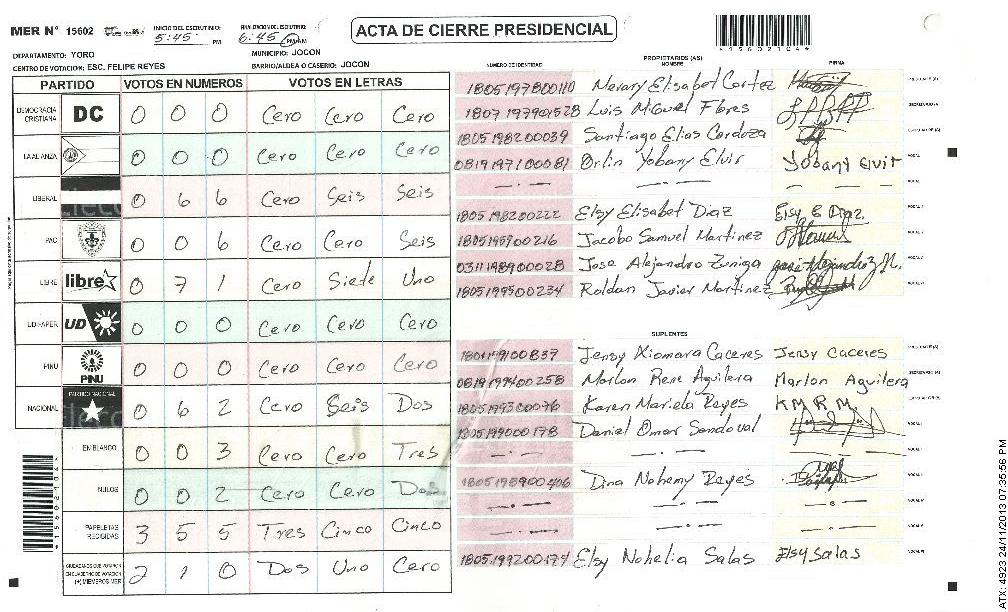 MER N° 15602
INICIO DEL ESCRUTINIO: 5:45 PM
FINALIZACION DEL ESCRUTINIO: 6:45 PM
ACTA DE CIERRE PRESIDENCIAL
*15602104*
DEPARTAMENTO: YORO
MUNICIPIO: JOCON
CENTRO DE VOTACION: ESC. FELIPE REYES
BARRIO/ALDEA O CASERIO: JOCON
PARTIDO VOTOS EN NUMEROS VOTOS EN LETRAS
DEMOCRACIA CRISTIANA DC 0 0 0 Cero Cero Cero
LA ALIANZA 0 0 0 Cero Cero Cero
LIBERAL 0 6 6 Cero Seis Seis
PAC 0 0 6 Cero Cero Seis
LIBRE libre 0 7 1 Cero Siete Uno
UD/FAPER UD 0 0 0 Cero Cero Cero
PINU PINU 0 0 0 Cero Cero Cero
NACIONAL PARTIDO NACIONAL 0 6 2 Cero Seis Dos
EN BLANCO 0 0 3 Cero Cero Tres
NULOS 0 0 2 Cero Cero Dos
PAPELETAS RECIBIDAS 3 5 5 Tres Cinco Cinco
CIUDADANOS QUE VOTARON EN CUADERNO DE VOTACION (+) MIEMBROS MER 2 1 0 Dos Uno Cero
PROPIETARIOS (AS)
NUMERO DE IDENTIDAD NOMBRE FIRMA
1805197800110 Merary Elisabet Cortez
1807197901528 Luis Miguel Flores
1805198200039 Santiago Elias Cardoza
0819197100081 Orlin Yobany Elvir Yobany Elvir
1805198200222 Elsy Elisabet Diaz Elsy E Diaz.
1805199500216 Jacobo Samuel Martinez
0311198900028 Jose Alejandro Zuniga
1805199500234 Roldan Javier Martinez
SUPLENTES
Jensy Xiomara Caceres Jensy Caceres
0819199400258 Marlon Rene Aguilera Marlon Aguilera
1805199300076 Karen Mariela Reyes K M R M
1805199000178 Daniel Omar Sandoval
1805198900406 Dina Nohemy Reyes
1805199200174 Elsy Nohelia Salas Elsy Salas
ATX: 4923 24/11/2013 07:35:56 PM